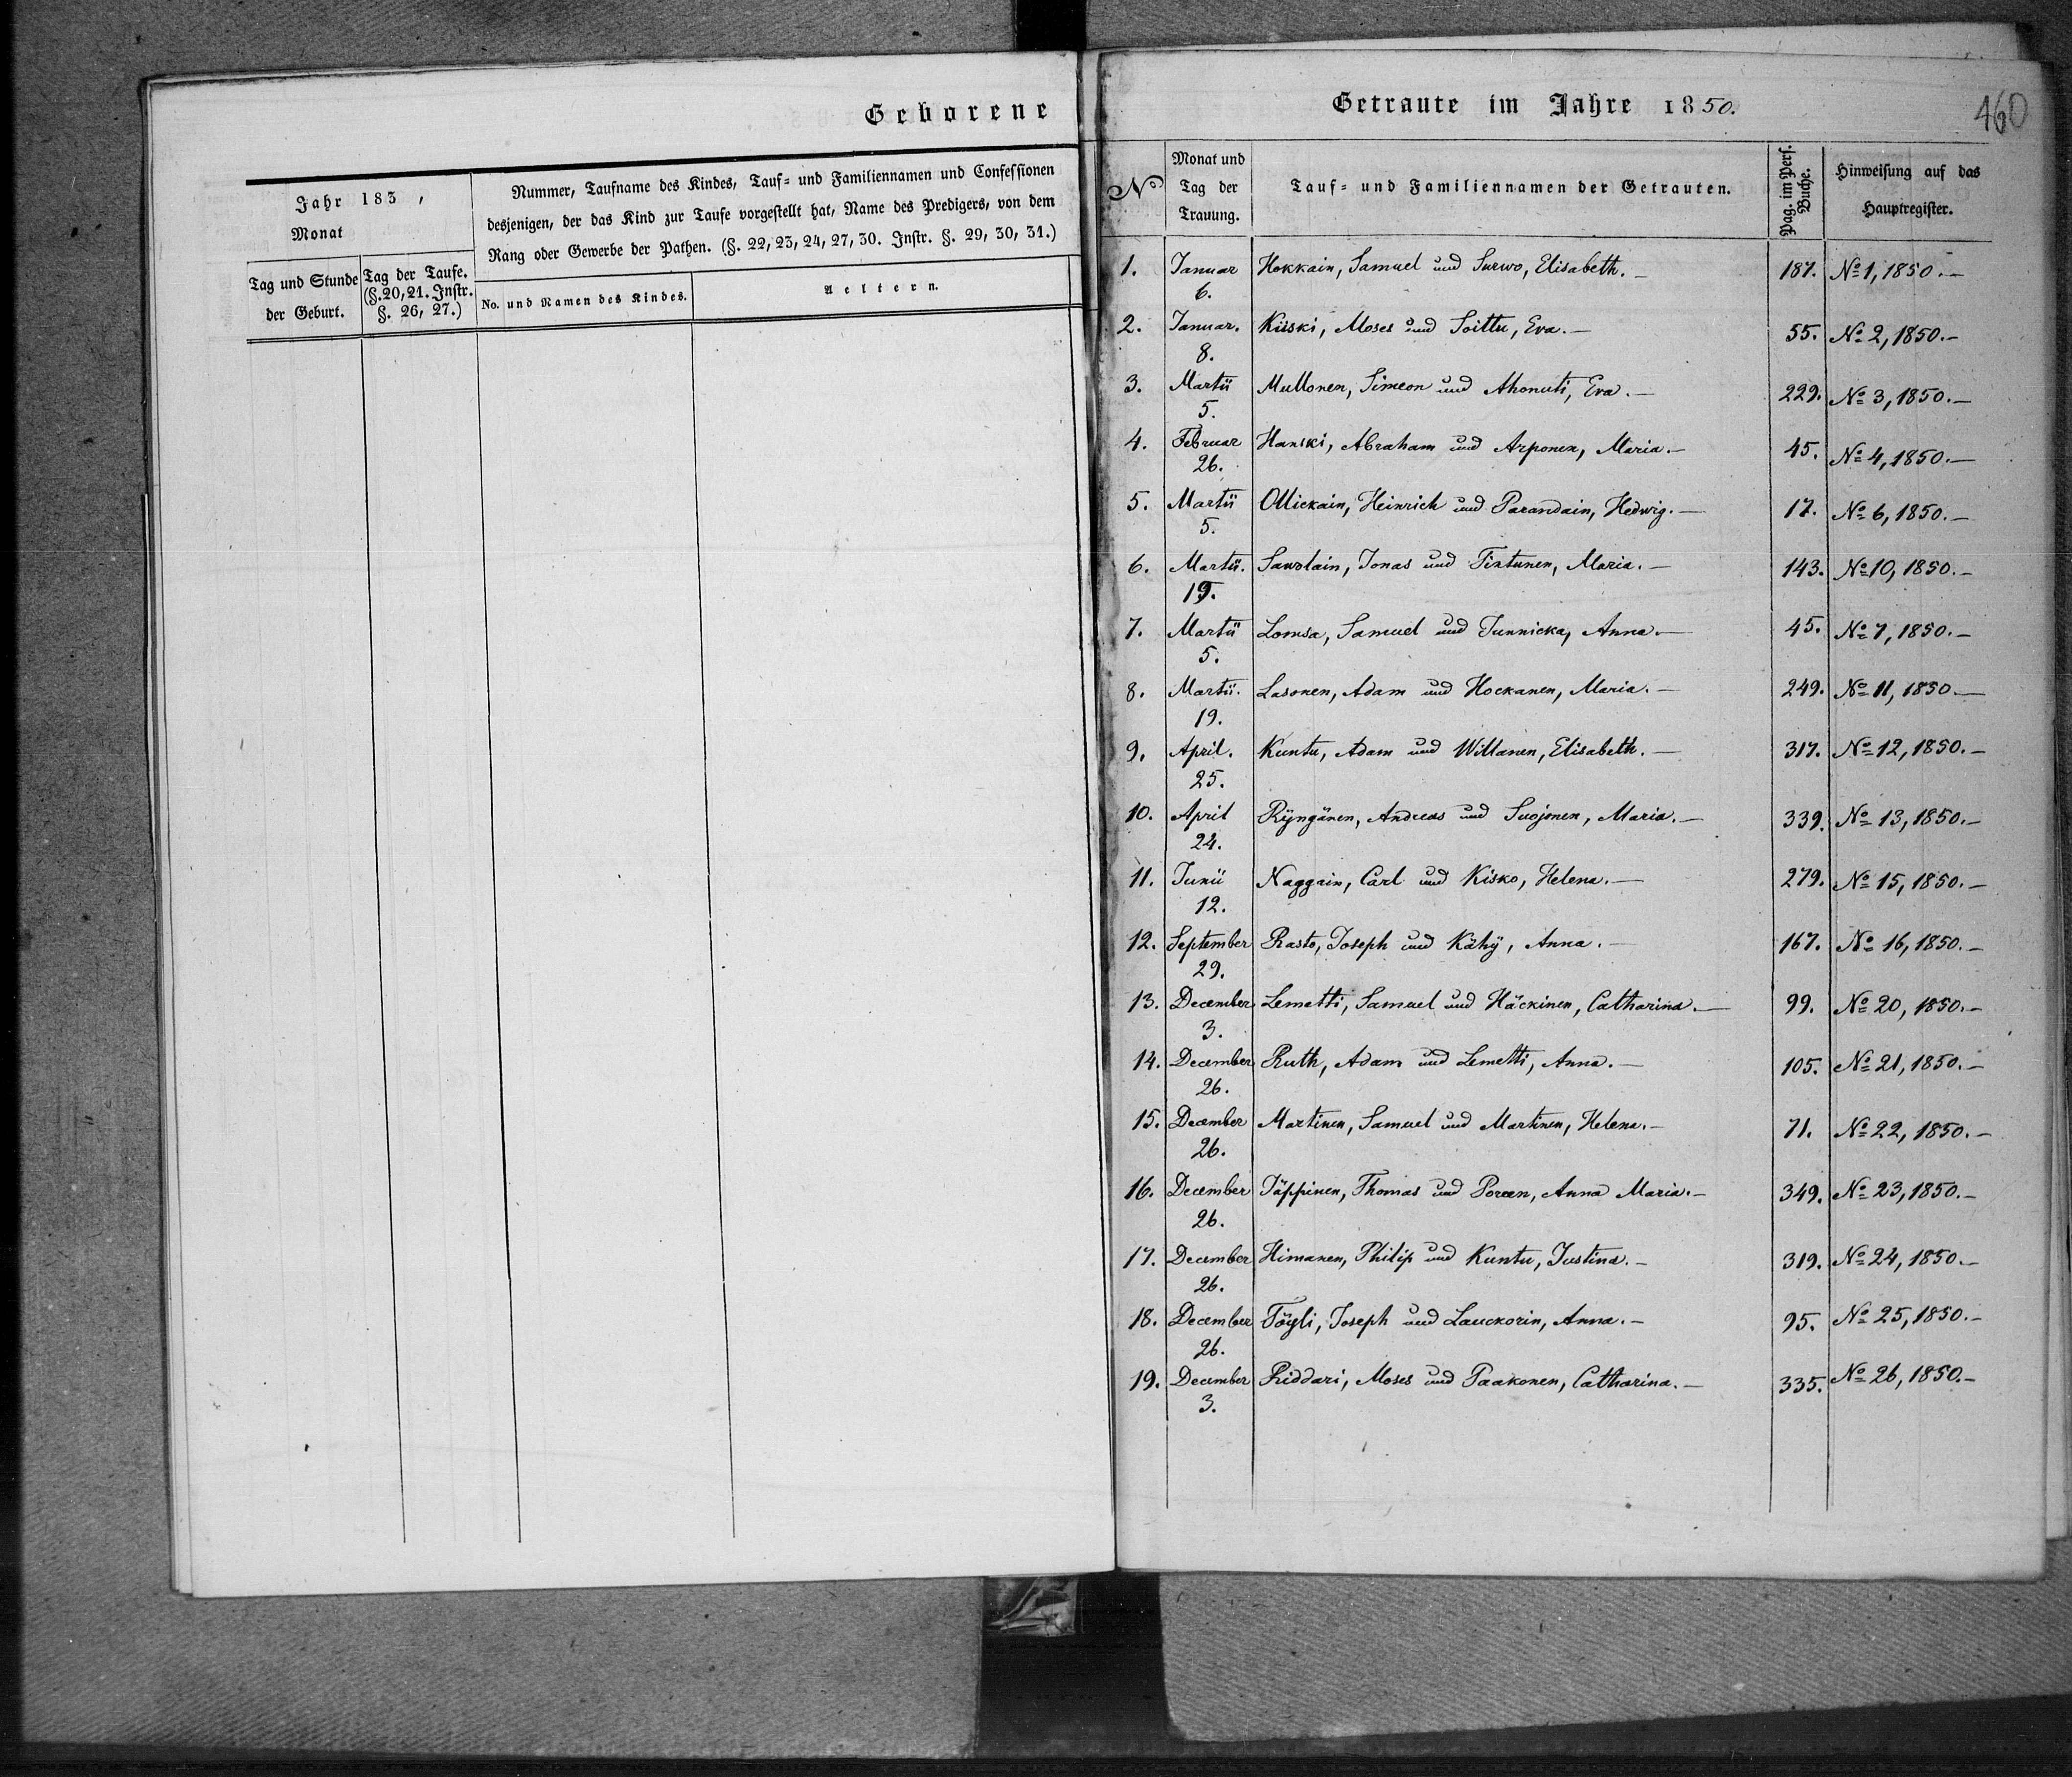 Geborene
Jahr 183 ,
Monat
Nummer, Taufname des Kindes, Tauf= und Familiennamen und Confessionen
desjenigen, der das Kind zur Taufe vorgestellt hat, Name des Predigers, von dem
Rang oder Gewerbe der Pathen. (§. 22, 23, 24, 27, 30. Instr. §. 29, 30, 31.)
Tag und Stunde
der Geburt.
Tag der Taufe.
(§. 20, 21. Instr.
§. 26, 27.)
No. und Namen des Kindes.
Aeltern.
Getraute im Jahre 1850.
460
No
Monat und
Tag der
Trauung.
Tauf= und Familiennamen der Getrauten.
Pag. im Pers.
Buche.
Hinweisung auf das
Hauptregister.
1. Januar Hokkain, Samuel und Surwo, Elisabeth. – 187. No 1, 1850. –
6.
2. Januar. Kiiski, Moses und Soittu, Eva. – 55. No 2, 1850. –
8.
3. Martii Mullonen, Simeon und Ahonuti, Eva. – 229. No 3, 1850. –
5.
4. Februar Hanski, Abraham und Arponen, Maria. – 45. No 4, 1850. –
26.
5. Martii Ollickain, Heinrich und Parandain, Hedwig. – 17. No 6, 1850. –
5.
6. Martii. Sawolain, Jonas und Tintunen, Maria. – 143. No 10, 1850. –
19.
7. Martii Lomsa, Samuel und Junnicka, Anna. – 45. No 7, 1850. –
5.
8. Martii. Lasonen, Adam und Hockanen, Maria. – 249. No 11, 1850 –
19.
9. April. Kuntu, Adam und Willanen, Elisabeth. – 317. No 12, 1850. –
25.
10. April Rÿngänen, Andreas und Suojonen, Maria. – 339. No 13, 1850. –
24.
11. Junii Naggain, Carl und Kisko, Helena. – 279. No 15, 1850. –
12.
12. September Rasto, Joseph und Kähÿ, Anna. – 167. No 16, 1850. –
29.
13. December Lemetti, Samuel und Häckinen, Catharina. – 99. No 20, 1850. –
3.
14. December Ruth, Adam und Lemetti, Anna. – 105. No 21, 1850. –
26.
15. December Martinen, Samuel und Martinen, Helena. – 71. No 22, 1850. –
26.
16. December Täppinen, Thomas und Poreen, Anna Maria. – 349. No 23, 1850. –
26.
17. December Himanen, Philip und Kuntu, Justina. – 319. No 24, 1850. –
26.
18. December Töyli, Joseph und Lauckorin, Anna. – 95. No 25, 1850. –
26.
19. December Riddari, Moses und Paakonen, Catharina. – 335. No 26, 1850. –
3.